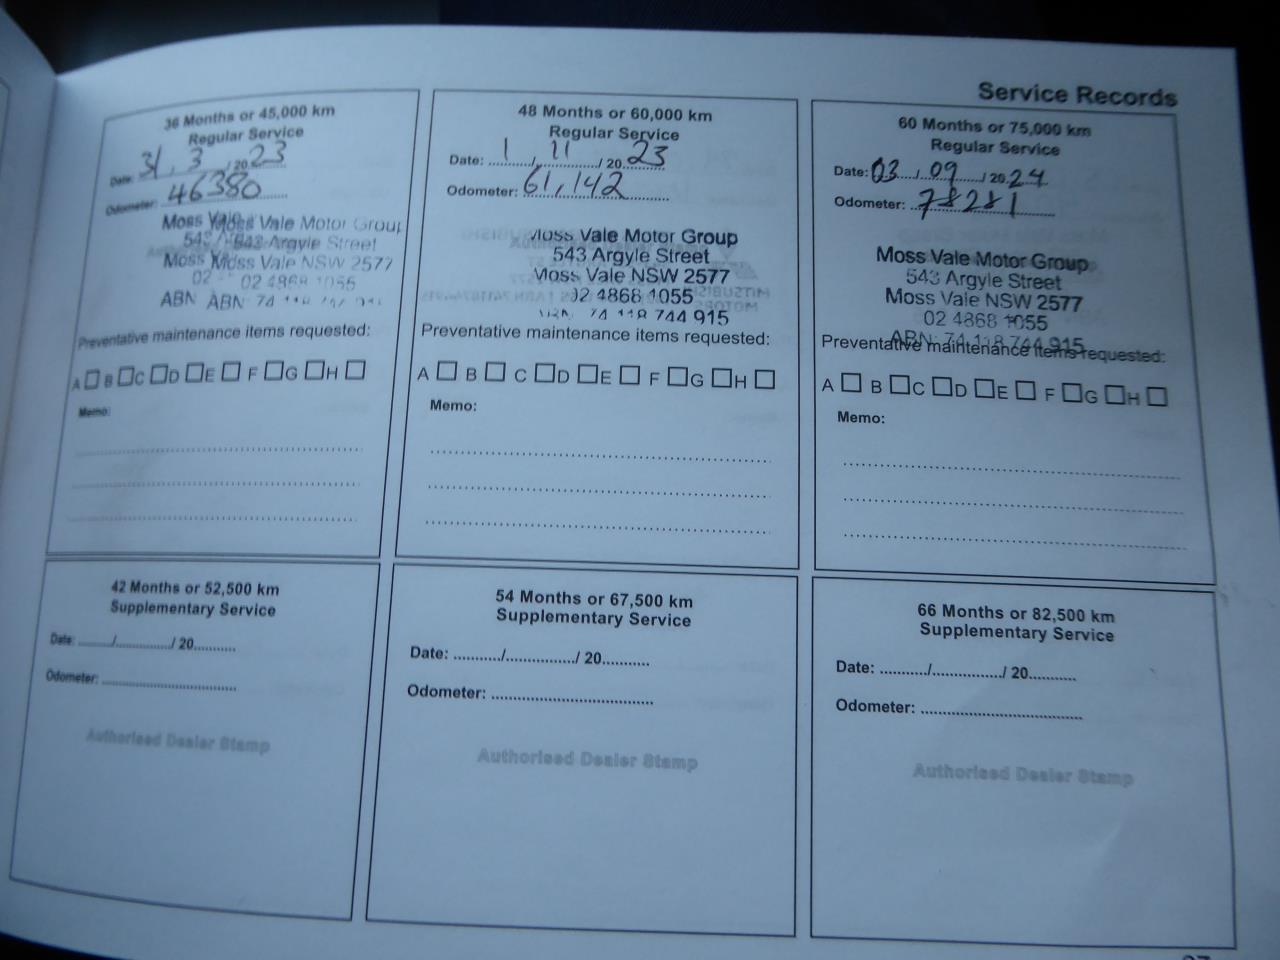 Service Records
36 Months or 45,000 km
Regular Service
Date: 31 / 3 / 20 23
Odometer: 46380
Moss Vale Moss Vale Motor Group
543 Argyle Street
Moss Moss Vale NSW 2577
02 02 4868 1055
ABN ABN: 74
Preventative maintenance items requested:
A □ B □ C □ D □ E □ F □ G □ H □
Memo:
48 Months or 60,000 km
Regular Service
Date: 1 / 11 / 20 23
Odometer: 61,142
Moss Vale Motor Group
543 Argyle Street
Moss Vale NSW 2577
02 4868 1055
ABN: 74 118 744 915
Preventative maintenance items requested:
A □ B □ C □ D □ E □ F □ G □ H □
Memo:
60 Months or 75,000 km
Regular Service
Date: 03 / 09 / 20 24
Odometer: 78281
Moss Vale Motor Group
543 Argyle Street
Moss Vale NSW 2577
02 4868 1055
ABN: 74 118 744 915
Preventative maintenance items requested:
A □ B □ C □ D □ E □ F □ G □ H □
Memo:
42 Months or 52,500 km
Supplementary Service
Date: ......../.............../ 20...........
Odometer: ....................................
Authorised Dealer Stamp
54 Months or 67,500 km
Supplementary Service
Date: .........../.............../ 20...........
Odometer: ....................................
Authorised Dealer Stamp
66 Months or 82,500 km
Supplementary Service
Date: .........../.............../ 20...........
Odometer: ....................................
Authorised Dealer Stamp